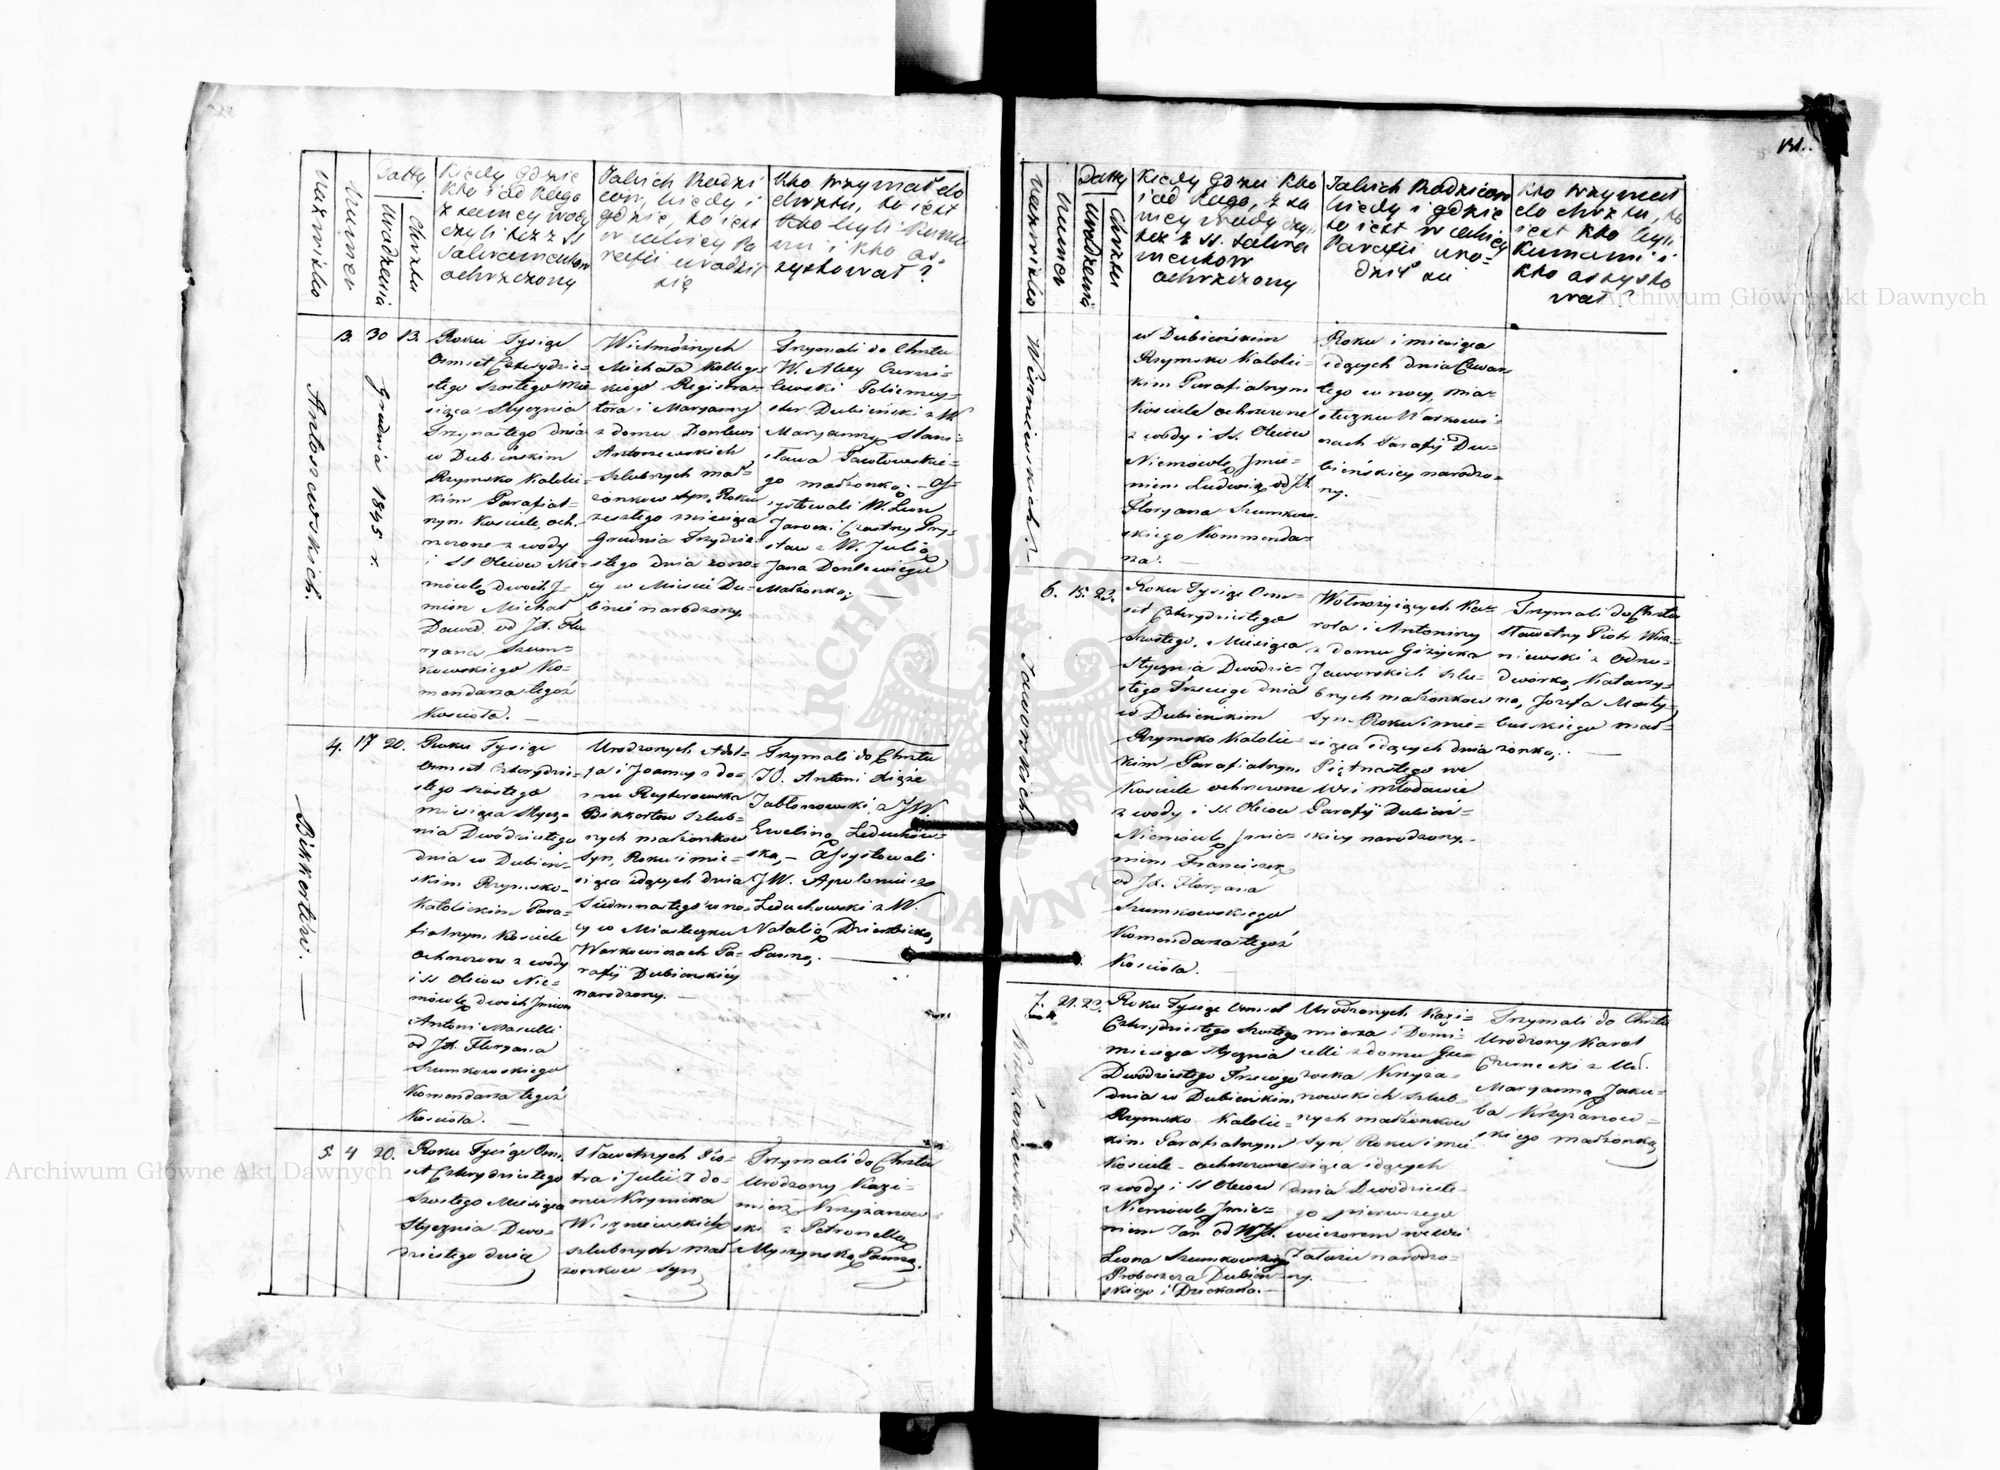 131.
Nazwisko
Numer
Datty
Urodzenia
Chrztu
Kiedy gdzie
kto i od kogo
z samey wody
czyli też z SS
Sakramentow
ochrzczony
Jakich Rodzi
cow, kiedy i
gdzie, to iest
w iakiey Pa
rafii urodził
się
Kto trzymał do
chrztu, to iest
kto byli Kuma
mi i kto as-
systował?
Antoszewskich.
3. 30 13.
Grudnia 1845 r.
Roku Tysiąc
Osmset Czterydzie-
stego szostego mie-
siąca Stycznia
Trzynastego dnia
w Dubieńskim
Rzymsko Katolic-
kim Parafial-
nym Kościele, och-
rzczone z wody
i SS Oleiow Nie-
mówlę dwoch J-
mion Michał
Dawid od Jx. Flo-
ryana Szum-
kowskiego Ko-
mendarza tegoż
Kościoła.
Wielmożnych
Michała Kolleg-
skiego Registra-
tora i Maryanny
z domu
Antoszewskich
szlubnych mał-
żonkow syn, Roku
zeszłego miesiąca
Grudnia Trzydzie-
stego dnia
w Mieście Du-
bnie narodzony.
Trzymali do Chrztu
W. Alexy
Policmey-
ster Dubieński z W.
Maryanną Stani-
sława Pawłowskie-
go małżonką. - As-
systowali W. Leon
Jarocki Czastny Pry-
staw z W. Julią
Jana
Małżonką.
Bikkortów.
4. 17 20.
Roku Tysiąc
Osmset Czterydzie-
stego szostego
miesiąca Stycz-
nia Dwódziestego
dnia w Dubien-
skim Rzymsko-
Katolickim Para-
fialnym Kościele
ochrzczone z wody
i SS Oleiow Nie-
mówlę dwoch Jmion
Antoni Marcelli
od Jx. Floryana
Szumkowskiego
Komendarza tegoż
Kościoła.
Urodzonych Adol-
fa i Joanny z do-
mu
Bikkortow szlub-
nych małżonkow
syn, Roku i mie-
siąca idących dnia
Siedmnastego w no-
cy w Miasteczku
Warkowiczach Pa-
rafij Dubienskiey
narodzony.
Trzymali do Chrztu
JO. Antoni Xiąże
Jabłonowski z JW.
Eweliną Leduchow-
ską, - Assystowali
JW. Apolinary
Leduchowski z W.
Natalią
Panną.
5. 4 20.
Roku Tysiąc Osm-
set Czterydziestego
szostego Miesiąca
Stycznia Dwo-
dziestego dnia
Sławetnych Pio-
tra i Julii z do-
mu Krynicka
Wiszniewskich
szlubnych mał-
żonkow syn
Trzymali do Chrztu
Urodzony Kazi-
mierz Krzyżanow-
ski z Petronellą
Myszyńską Panną.
Nazwisko
Numer
Datty
Urodzenia
Chrztu
Kiedy gdzie kto
i od kogo, z sa
mey wody czyli
też z SS. Sakra
mentow
ochrzczony
Jakich Rodzicow
kiedy i gdzie
to iest w iakiey
Parafii uro-
dził się
Kto trzymał
do chrztu, to
iest kto byli
Kumami i
kto assysto
wał?
Wiszniewskich
w Dubieńskim
Rzymsko Katolic-
kim Parafialnym
Kościele ochrzczone
z wody i SS. Oleiow
Niemowlę Jmie-
niem Ludwik od Jx.
Floryana Szumkow-
skiego Kommenda-
rza.
Roku i miesiąca
idących dnia Czwar
tego w nocy, mia-
steczku Warkowi-
czach Parafij Du-
bienskiey narodzo-
ny.
Jaworskich
6. 15. 23.
Roku Tysiąc Osm-
set Czterydziestego
Szostego, Miesiąca
Stycznia Dwódzie-
stego Trzeciego dnia
w Dubienskim
Rzymsko Katolic-
kim Parafialnym
Kościele ochrzczone
z wody i SS. Oleiow
Niemówlę Jmie-
niem Franciszek
od Jx. Floryana
Szumkowskiego
Komendarza tegoż
Kościoła.
Wolnożyjących Ka-
rola i Antoniny
z domu Giżycka
Jaworskich szlu-
bnych małżonkow
syn. Roku i mie-
siąca idących dnia
Piętnastego we
Wsi Młodawie
Parafij Dubień-
skiey narodzony.
Trzymali do Chrztu
Sławetny Piotr Wisz-
niewski z Odno-
dworką, Katarzy-
ną, Jozefa
mał-
żonką.
Krzyżanowskich
7. 21. 23.
Roku Tysiąc Osmset
Czterydziestego Szostego
miesiąca Stycznia
Dwódziestego Trzeciego
dnia w Dubieńskim
Rzymsko Katolic-
kim Parafialnym
Kościele ochrzczone
z wody i SS Oleiow
Niemówlę Jmie-
niem Jan od WJx.
Leona Szumkowskiego
Proboszcza Dubień-
skiego i Dziekana.
Urodzonych Kazi-
mierza i Domi-
celli z domu
Krzyża-
nowskich szlub-
nych małżonkow
syn Roku i mie-
siąca idących
dnia Dwódzieste-
go pierwszego
wieczorem we Wsi
narodzo-
ny.
Trzymali do Chrztu
Urodzony Karol
Czernecki z Ur.
Maryanną Jaku-
ba Krzyżanow-
skiego małżonką
ARCHIWUM GŁÓWNE AKT DAWNYCH
Archiwum Główne Akt Dawnych
Archiwum Główne Akt Dawnych